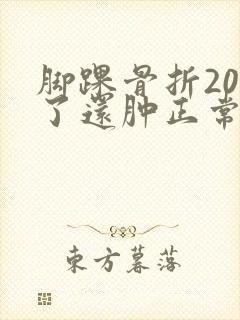 脚踝骨折20
了还肿正常
东方暮落